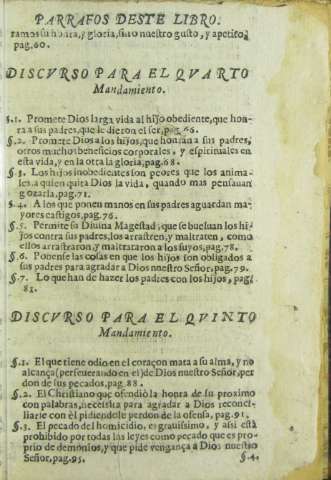 PARRAFOS DESTE LIBRO.
ramos su honra, y gloria, sino nuestro gusto, y apetito,
pag.60.
DISCVRSO PARA EL QVARTO
Mandamiento.
§.1. Promete Dios larga vida al hijo obediente, que hon-
ra a sus padres, que le dieron el ser, pag.66.
§.2. Promete Dios a los hijos, que honran a sus padres,
otros muchos beneficios corporales, y espirituales en
esta vida, y en la otra la gloria, pag.68.
§.3. Los hijos inobedientes son peores que los anima-
les, a quien quita Dios la vida, quando mas pensauan
gozarla, pag.71.
§.4. A los que ponen manos en sus padres aguardan ma-
yores castigos, pag.76.
§.5. Permite su Diuina Magestad, que se bueluan los hi-
jos contra sus padres, los arrastren, y maltraten, como
ellos arrastraron, y maltrataron a los suyos, pag.78.
§.6. Ponense las cosas en que los hijos son obligados a
sus padres para agradar a Dios nuestro Señor, pag.79.
§.7. Lo que han de hazer los padres con los hijos, pag.
83.
DISCVRSO PARA EL QVINTO
Mandamiento.
§.1. El que tiene odio en el coraçon mata a su alma, y no
alcança (perseuerando en el) de Dios nuestro Señor, per
don de sus pecados, pag.88.
§.2. El Christiano que ofendiò la honra de su proximo
con palabras, necessita para agradar a Dios reconci-
liarse con èl pidiendole perdon de la ofensa, pag.91.
§.3. El pecado del homicidio, es grauissimo, y assi està
prohibido por todas las leyes como pecado que es pro-
prio de demonios, y que pide vengança a Dios nuestro
Señor, pag.95. §.4.